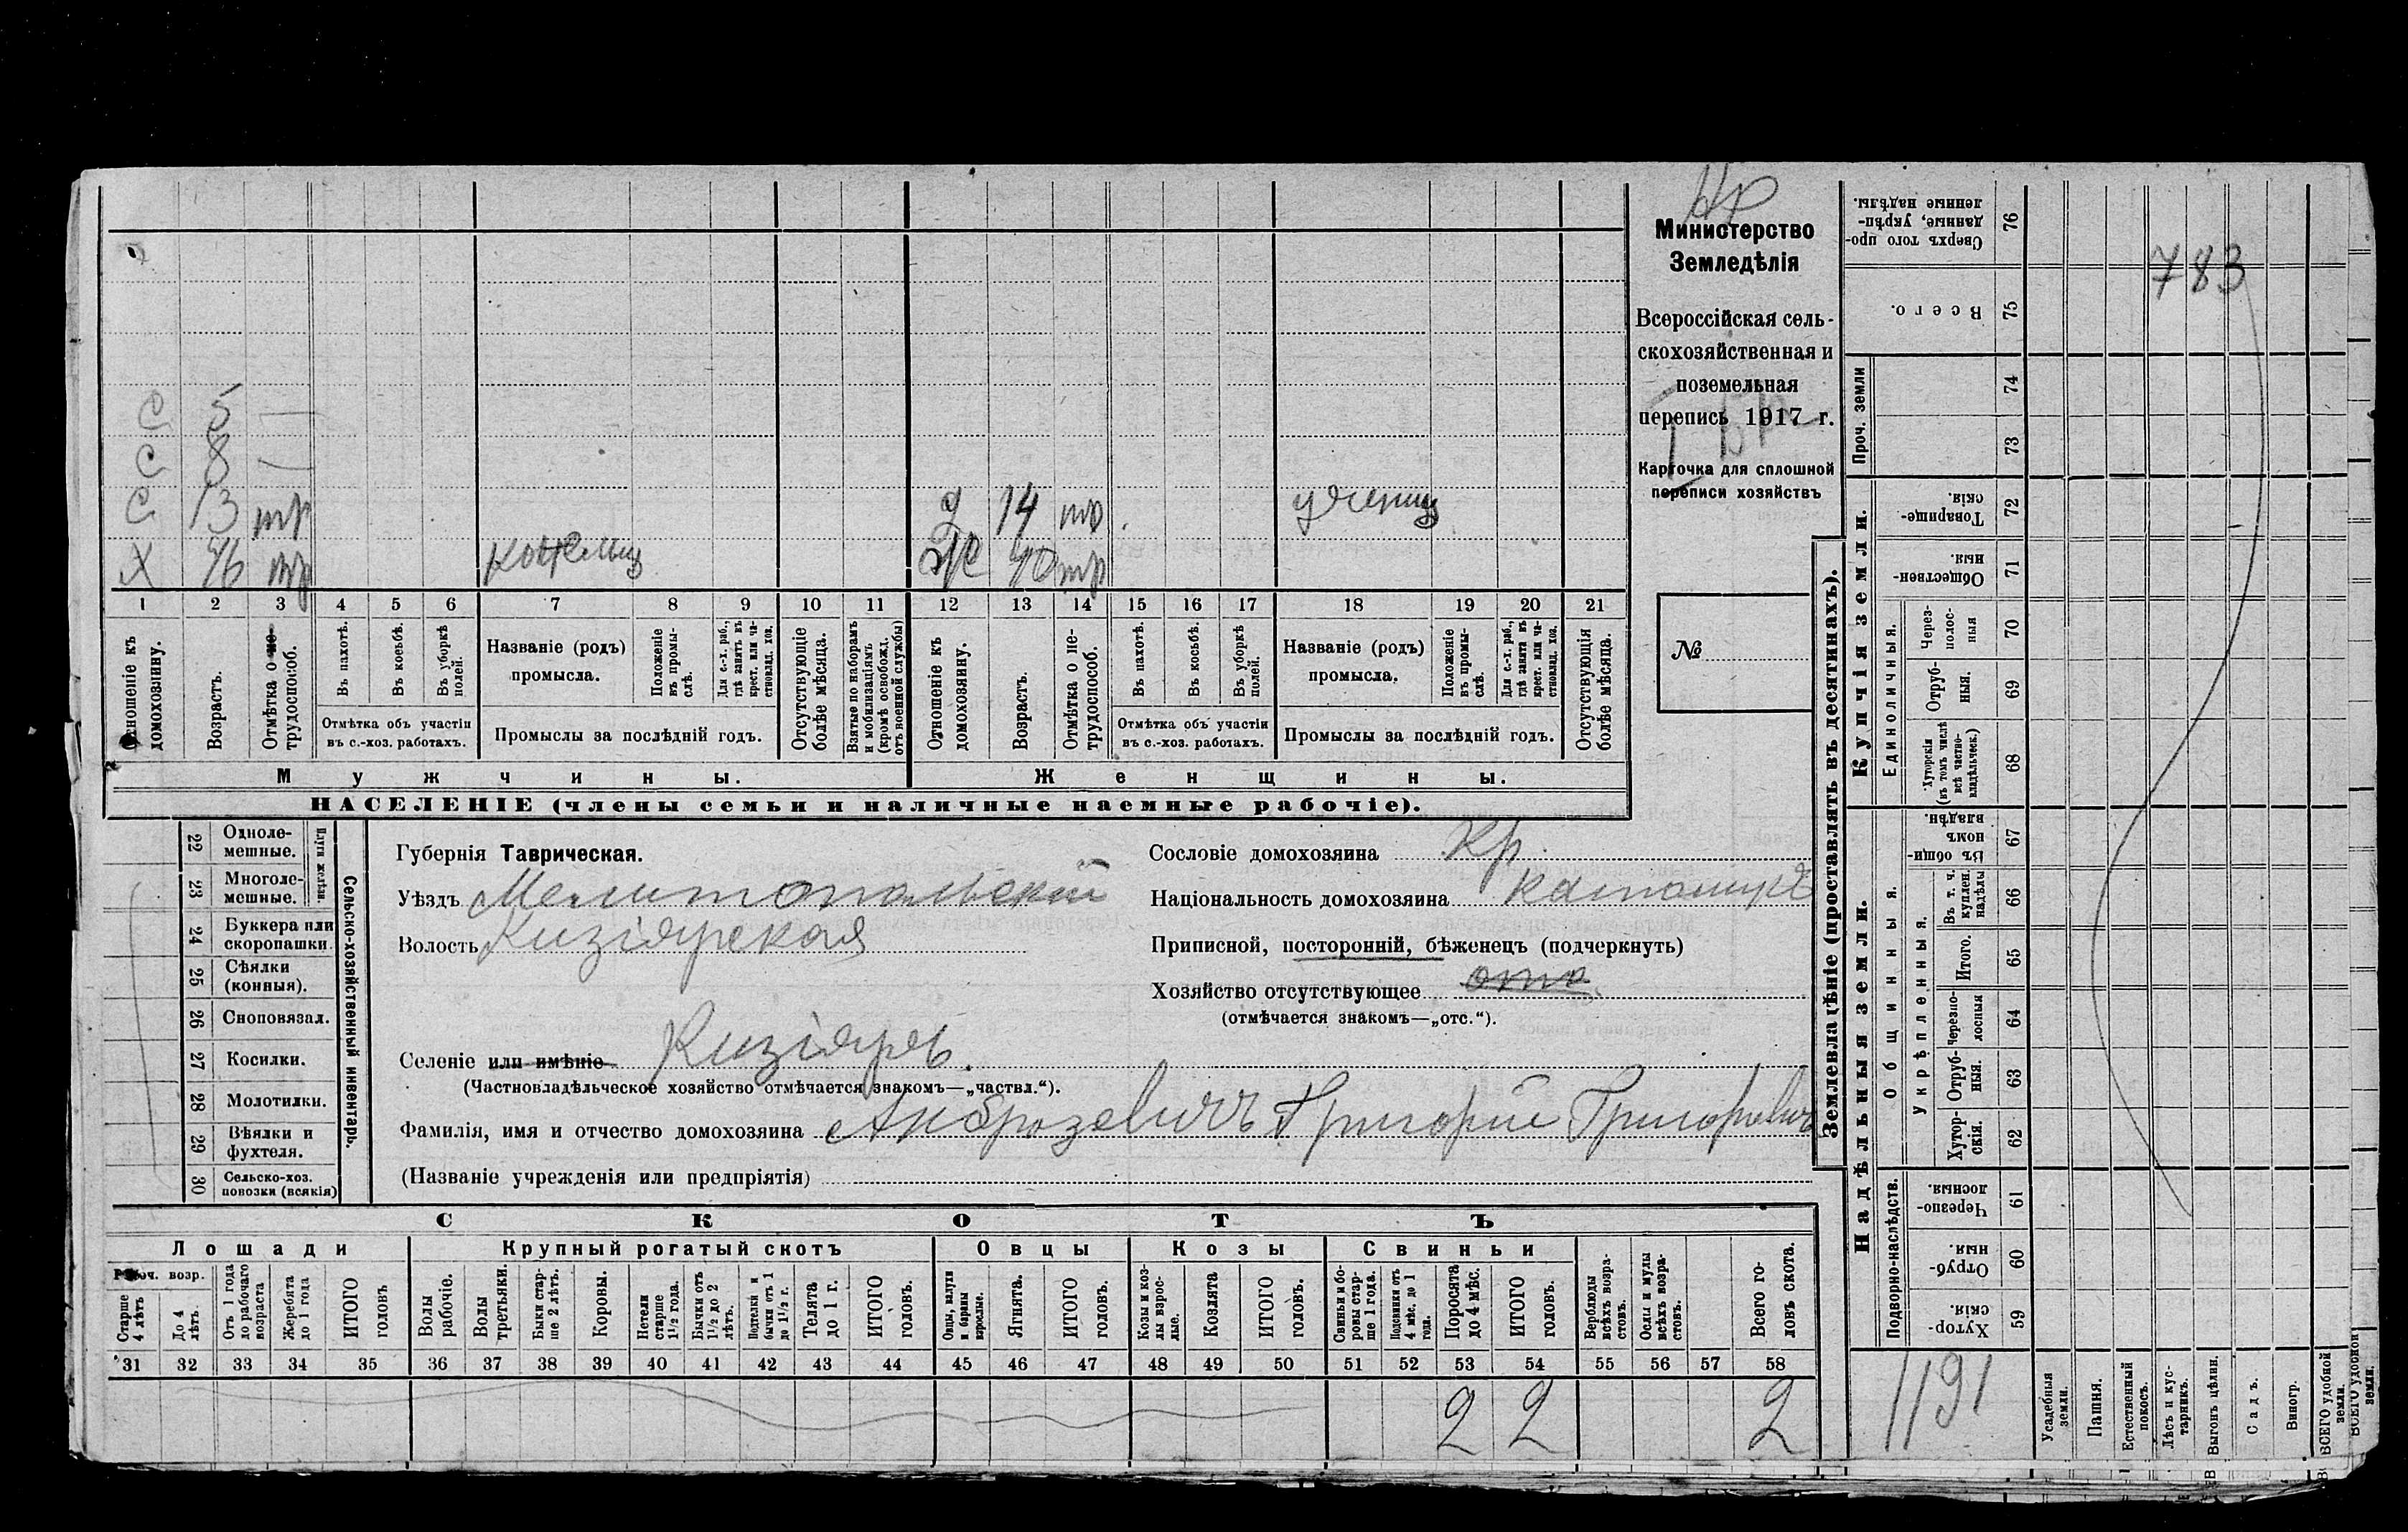 Нр
Министерство
Земледѣлія
Всероссійская сель-
скохозяйственная и
поземельная
перепись 1917 г.
Карточка для сплошной
переписи хозяйствъ
№
783
С 5 —
С 8 —
С 13 тр
Х 46 тр
д 14 тр. учениц
Ж 40 тр
1 2 3 4 5 6 7 8 9 10 11 12 13 14 15 16 17 18 19 20 21
Отношеніе къ домохозяину.
Возрастъ.
Отмѣтка о не-трудоспособ.
Въ пахотѣ.
Въ косьбѣ.
Въ уборкѣ полей.
Отмѣтка объ участіи въ с.-хоз. работахъ.
Названіе (родъ) промысла.
Положеніе въ промы-слѣ.
Для с.-х. раб., гдѣ занятъ въ крест. или ча-стновлад. хоз.
Промыслы за послѣдній годъ.
Отсутствующіе болѣе мѣсяца.
Взятые по наборамъ и мобилизаціямъ (кромѣ освобожд. отъ военной службы)
Отношеніе къ домохозяину.
Возрастъ.
Отмѣтка о не-трудоспособ.
Въ пахотѣ.
Въ косьбѣ.
Въ уборкѣ полей.
Отмѣтка объ участіи въ с.-хоз. работахъ.
Названіе (родъ) промысла.
Положеніе въ промы-слѣ.
Для с.-х. раб., гдѣ занята въ крест. или ча-стновлад. хоз.
Промыслы за послѣдній годъ.
Отсутствующія болѣе мѣсяца.
Мужчины.
Женщины.
НАСЕЛЕНІЕ (члены семьи и наличные наемные рабочіе).
22 Одноле-мешные.
23 Многоле-мешные.
24 Буккера или скоропашки.
25 Сѣялки (конныя).
26 Сноповязал.
27 Косилки.
28 Молотилки.
29 Вѣялки и фухтеля.
30 Сельско-хоз. повозки (всякія)
Сельско-хозяйственный инвентарь.
Губернія Таврическая.
Уѣздъ Мелитопольскій
Волость Кизіярская
Селеніе или имѣніе Кизіяръ.
(Частновладѣльческое хозяйство отмѣчается знакомъ—„частвл.“).
Фамилія, имя и отчество домохозяина Амброзевичъ Григорій Григоровичъ
(Названіе учрежденія или предпріятія)
Сословіе домохозяина Кр.
Національность домохозяина
Приписной, посторонній, бѣженецъ (подчеркнуть)
Хозяйство отсутствующее
(отмѣчается знакомъ—„отс.“).
СКОТЪ
Лошади
Крупный рогатый скотъ
Овцы
Козы
Свиньи
Рабоч. возр.
Старше 4 лѣтъ
До 4 лѣтъ.
Отъ 1 года до рабочаго возраста
Жеребята до 1 года
ИТОГО головъ
Волы рабочіе.
Волы третьяки.
Быки стар-ше 2 лѣтъ.
Коровы.
Нетели старше 1½ года.
Бычки отъ 1½ до 2 лѣтъ.
Подтелки и бычки отъ 1 до 1½ г.
Телята до 1 г.
ИТОГО головъ.
Овцы, валухи и бараны взрослые.
Ягнята.
ИТОГО головъ.
Козы и коз-лы взрос-лые.
Козлята
ИТОГО головъ.
Свиньи и бо-ровы стар-ше 1 года.
Подсвинки отъ 4 мѣс. до 1 года.
Поросята до 4 мѣс.
ИТОГО головъ.
Верблюды всѣхъ возра-стовъ.
Ослы и мулы всѣхъ возра-стовъ.
Всего го-ловъ скота.
31 32 33 34 35 36 37 38 39 40 41 42 43 44 45 46 47 48 49 50 51 52 53 54 55 56 57 58
2 2 2
Землевладѣніе (проставлять въ десятинахъ).
Купчія земли.
Надѣльныя земли.
Сверхъ того про-данные, укрѣп-ленные надѣлы. 76
Всего. 75
Проч. земли 74
73
Товарище-скія. 72
Обществен-ныя 71
Единоличныя.
Через-полос-ныя 70
Отруб-ныя. 69
Хуторскія (въ томъ числѣ всѣ частно-владѣльческ.) 68
Общинныя.
Въ общин-номъ владѣн. 67
Укрѣпленныя.
Въ т. ч. куплен. надѣлы 66
Итого. 65
Черезпо-лосныя 64
Отруб-ныя. 63
Хутор-скія. 62
Подворно-наслѣдств.
Черезпо-лосныя. 61
Отруб-ныя. 60
Хутор-скія. 59
1191
Усадебныя земли.
Пашня.
Естественный покосъ.
Лѣсъ и кус-тарникъ.
Выгонъ цѣлин.
Садъ.
Виногр.
ВСЕГО удобной земли.
ВСЕГО удобной земли.